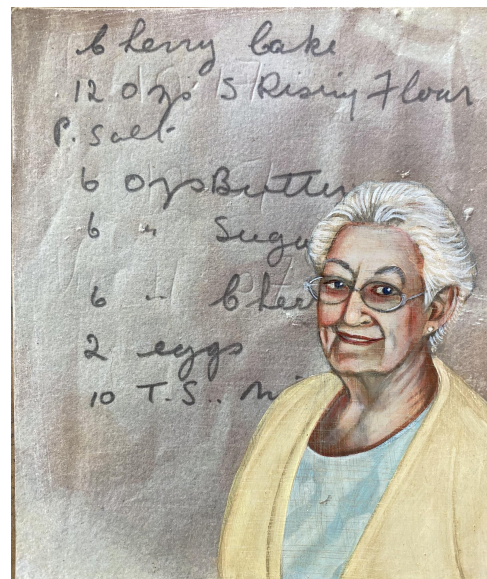 Cherry Cake
12 Ozs S Rising Flour
P. Salt
6 Ozs Butter
6 " Suga
6 "
2 eggs
10 T.S.. mi